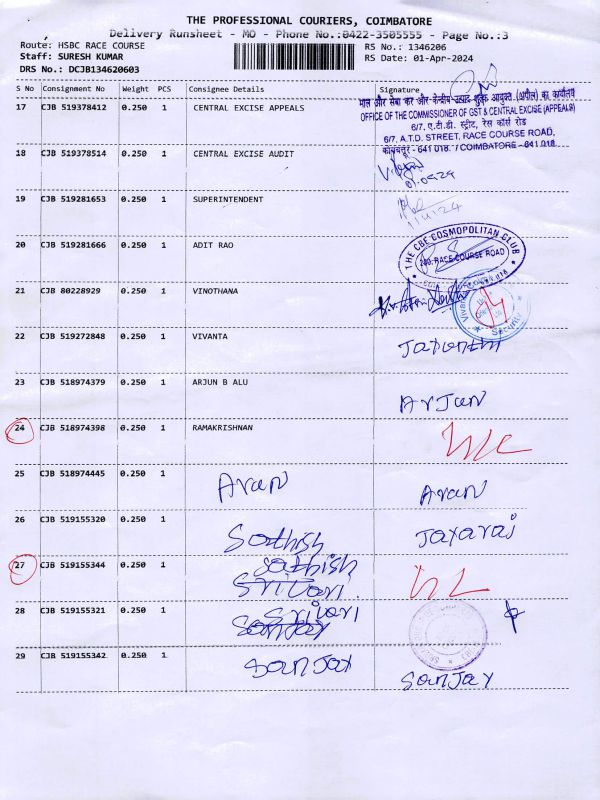 THE PROFESSIONAL COURIERS, COIMBATORE
Delivery Runsheet - MO - Phone No.:0422-3505555 - Page No.:3
Route: HSBC RACE COURSE
RS No.: 1346206
Staff: SURESH KUMAR
RS Date: 01-Apr-2024
DRS No.: DCJB134620603
S No Consignment No Weight PCS Consignee Details Signature
17 CJB 519378412 0.250 1 CENTRAL EXCISE APPEALS
माल और सेवा कर और केन्द्रीय उत्पाद शुल्क आयुक्त (अपील) का कार्यालय
OFFICE OF THE COMMISSIONER OF GST & CENTRAL EXCISE (APPEALS)
6/7, ए.टी.डी. स्ट्रीट, रेस कोर्स रोड
6/7, A.T.D. STREET, RACE COURSE ROAD,
कोयंबत्तूर - 641 018. / COIMBATORE - 641 018.
18 CJB 519378514 0.250 1 CENTRAL EXCISE AUDIT
19 CJB 519281653 0.250 1 SUPERINTENDENT
1/4/24
20 CJB 519281666 0.250 1 ADIT RAO
THE CBE COSMOPOLITAN CLUB
RACE COURSE ROAD
21 CJB 80228929 0.250 1 VINOTHANA
Security
22 CJB 519272848 0.250 1 VIVANTA
Jayanthi
23 CJB 518974379 0.250 1 ARJUN B ALU
Arjun
24 CJB 518974398 0.250 1 RAMAKRISHNAN
25 CJB 518974445 0.250 1 Arun Arun
26 CJB 519155320 0.250 1 Sathish Jayaraj
27 CJB 519155344 0.250 1 Sathish
Srivari
28 CJB 519155321 0.250 1 Srivari
Sanjay
29 CJB 519155342 0.250 1 Sanjay Sanjay